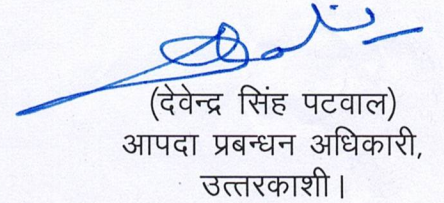 (देवेन्द्र सिंह पटवाल)
आपदा प्रबन्धन अधिकारी,
उत्तरकाशी।